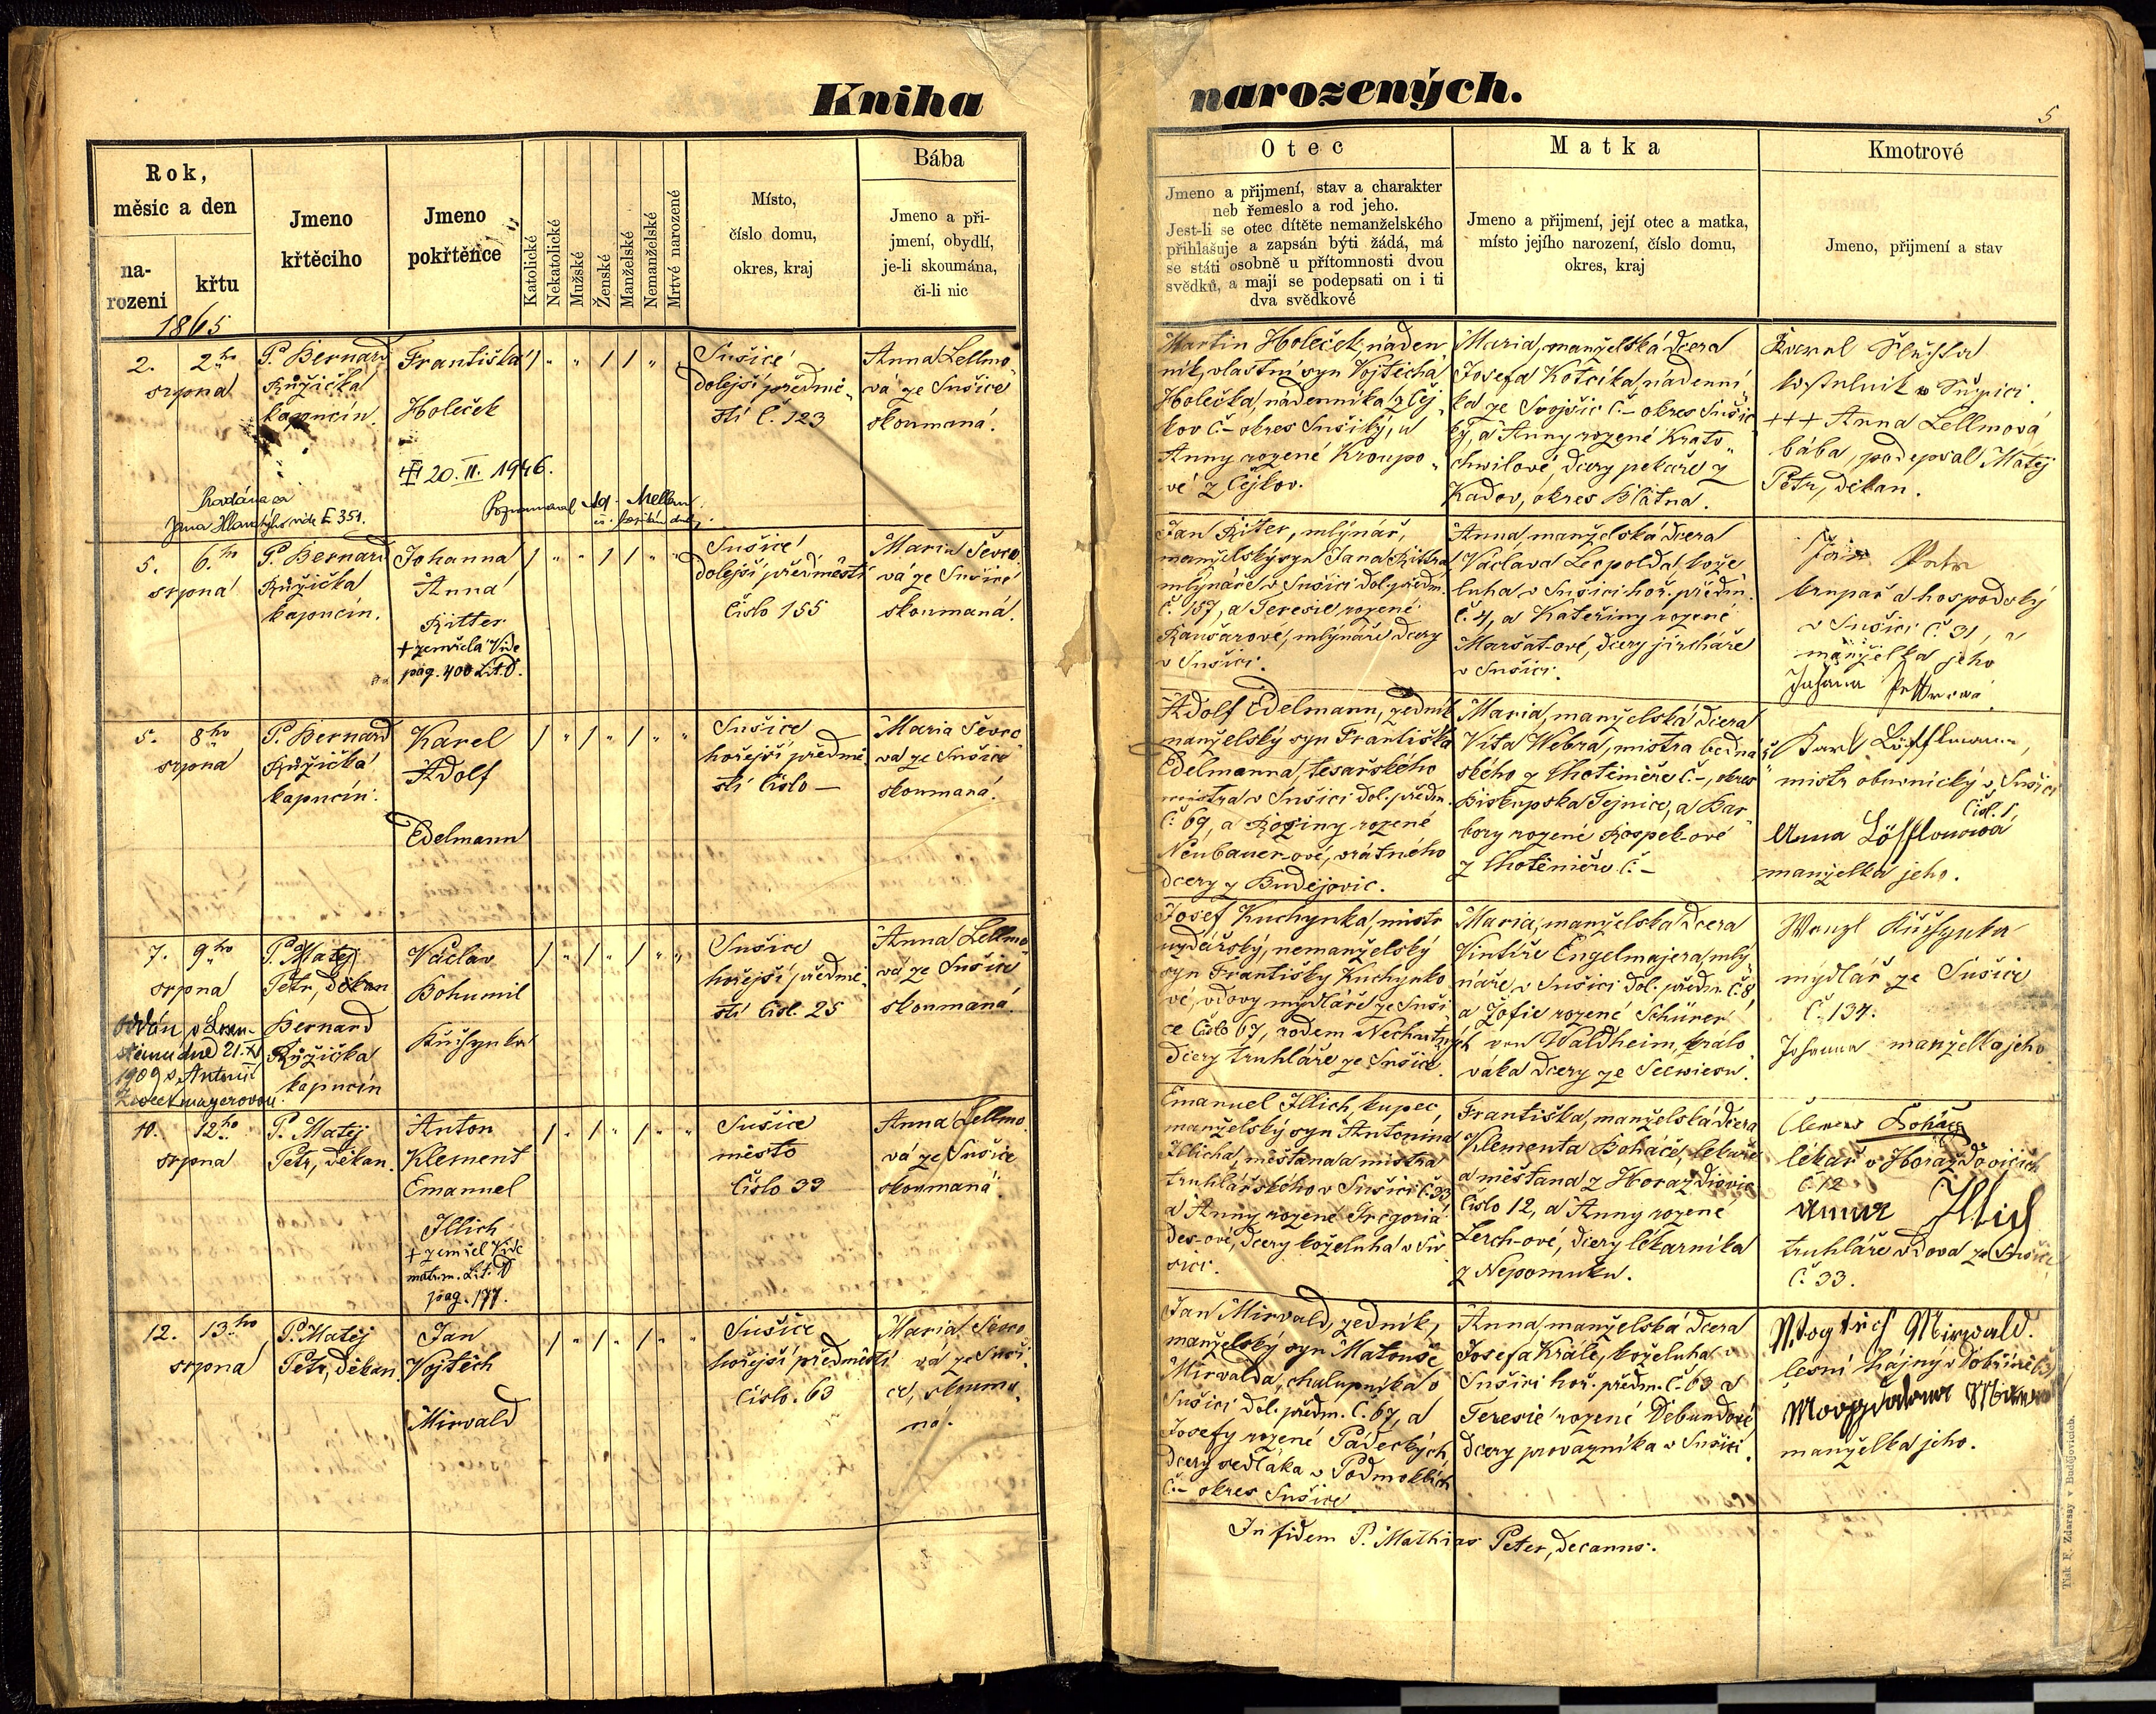 Kniha narozených.
5
Rok,
měsic a den
na-
rození
křtu
1865
Jmeno
křtěcího
Jmeno
pokřtěnce
Katolické
Nekatolické
Mužské
Ženské
Manželské
Nemanželské
Mrtvé narozené
Místo,
číslo domu,
okres, kraj
Bába
Jmeno a při-
jmení, obydlí,
je-li skoumána,
či-li nic
Otec
Jmeno a přijmení, stav a charakter
neb řemeslo a rod jeho.
Jest-li se otec dítěte nemanželského
přihlašuje a zapsán býti žádá, má
se státi osobně u přítomnosti dvou
svědků, a mají se podepsati on i ti
dva svědkové
Matka
Jmeno a přijmení, její otec a matka,
místo jejího narození, číslo domu,
okres, kraj
Kmotrové
Jmeno, přijmení a stav
2. 2ho
srpna
P. Bernard
Růžička
kapucín.
Františka
Holeček
20. II. 1946.
Jana vide E 351.
Sušice
dolejší předmě-
stí č. 123
Anna Lellmo-
vá ze Sušice
skoumaná.
Martin Holeček, náden-
ník, vlastní syn Vojtěcha
Holečka, nádenníka z Čej-
kov č.– okres Sušický, a
Anny rozené Kroupo-
vé z Čejkov.
Maria, manželská dcera
Josefa Kotríka, nádenní-
ka ze Svojšic č.– okres Sušic-
ký, a Anny rozené Krato-
chwilové, dcery pekaře z
Kadov, okres Blatna.
kostelník v Sušici.
+++ Anna Lellmová
bába, podepsal Matěj
Petr, děkan.
5. 6.ho
srpna
P. Bernard
Růžička
kapucín.
Johanna
Anna
Ritter
+ zemřela Vide
pag. 400 Lit. D.
Sušice
dolejší předměstí
Číslo 155
Maria Ševco-
vá ze Sušice
skoumaná.
Jan Riter, mlýnář,
manželský syn Jana Rittra,
mlynáře v Sušici dol. předm.
č. 157, a Teresie rozené
Kaušarové, mlýnáře dcery
v Sušici.
Anna, manželská dcera
Václava Leopolda, kože-
luha v Sušici hoř. předm.
č. 4, a Kateřiny rozené
Maršat-ové, dcery jircháře
v Sušici.
krupař a hospodský
v Sušici č. 31, a
manželka jeho
Johana
5. 8ho
srpna
P. Bernard
Růžička
kapucín.
Karel
Adolf
Edelmann
Sušice
hořejší předmě-
stí číslo –
Maria Ševco-
vá ze Sušice
skoumaná.
Adolf Edelmann, zedník,
manželský syn Františka
Edelmanna, tesařského
mistra v Sušici dol. předm.
č. 69, a Rosiny rozené
Neubauer-ové, vrátného
dcery z Budějovic.
Maria, manželská dcera
Víta Webra, mistra bednář-
ského z Chotěměře č.–, okres
Biskupska Tejnice, a Bar-
bory rozené Rospek-ové
z Chotěměře č.–
Karl Löfflmann,
mistr obuvnický v Sušici
čísl. 1.
Anna Löfflmannová
manželka jeho.
7. 9ho
srpna
P. Matěj
Petr, děkan
Bernard
Růžička
kapucín
dne 21. XI
1909 s Antonií
Václav
Bohumil
Kuchynka
Sušice
hořejší předmě-
stí čísl. 25
Anna Lellmo-
vá ze Sušice
skoumaná.
Josef Kuchynka, mistr
mydlářský, nemanželský
syn Františky Kuchynko-
vé, vdovy mydláře ze Suši-
ce číslo 67, rodem Nechutných
dcery truhláře ze Sušice.
Maria, manželska dcera
Vintíře Engelmajera, mlý-
náře v Sušici dol. předm. č. 8,
a Žofie rozené Schürer
von Waldheim, králo-
váka dcery ze Seewiesn.
Wenzl Kuchynka
mydlář ze Sušice
Č. 134.
Johanna manželka jeho
10. 12ho
srpna
P. Matěj
Petr, děkan.
Anton
Klement
Emanuel
Illich
+ zemřel Vide
matrm. Lit. D
pag. 177.
Sušice
město
Číslo 33
Anna Lellmo-
vá ze Sušice
skoumaná.
Emanuel Illich, kupec,
manželský syn Antonína
Illicha, měštana a mistra
truhlářského v Sušici č. 33,
a Anny rozené Gregoria-
des-ové, dcery koželuha v Su-
šici.
Františka, manželská dcera
Klementa Boháče, lékaře
a měštana z Horazdiovic
číslo 12, a Anny rozené
Lerch-ové, dcery lékarníka
z Nepomuku.
Clemens Boháč
lékař v Horažďovicích
č. 12
Anna Illich
truhláře vdova ze Sušice
č. 33.
12. 13.ho
srpna
P. Matěj
Petr, děkan.
Jan
Vojtěch
Mirvald
Sušice
hořejší předměstí
Číslo. 63
Maria Ševco-
vá ze Suši-
ce, skouma-
ná.
Jan Mirvald, zedník,
manželský syn Matouše
Mirvalda, chalupníka v
Sušici dol. předm. č. 67, a
Josefy rozené Pádeckých,
dcery sedláka v Podmoklích
č.– okres Sušice.
Anna, manželská dcera
Josefa Krále, koželuha v
Sušici hoř. předm. č. 63 a
Teresie rozené Debundové
dcery provazníka v Sušici.
Mirwald.
lesní hajný v
Magdalena
manželka jeho.
In fidem P. Mathias Peter, decanus.
Tisk F. Zdarsay v Budějovicích.